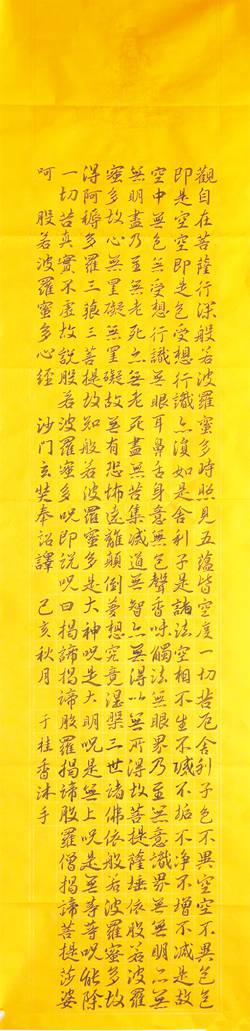 觀自在菩薩行深般若波羅蜜多時照見五蘊皆空度一切苦厄舍利子色不異空空不異色色
即是空空即是色受想行識亦復如是舍利子是諸法空相不生不滅不垢不净不增不減是故
空中無色無受想行識無眼耳鼻舌身意無色聲香味觸法無眼界乃至無意識界無無明亦無
無明盡乃至無老死亦無老死盡無苦集滅道無智亦無得以無所得故菩提薩埵依般若波羅
蜜多故心無罣礙無罣礙故無有恐怖遠離顛倒夢想究竟涅槃三世諸佛依般若波羅蜜多故
得阿耨多羅三藐三菩提故知般若波羅蜜多是大神呪是大明呪是無上呪是無等等呪能除
一切苦真實不虛故說般若波羅蜜多呪即說呪曰揭諦揭諦般羅揭諦般羅僧揭諦菩提莎婆
呵 般若波羅蜜多心經 沙门玄奘奉詔譯 己亥秋月 于桂香沐手